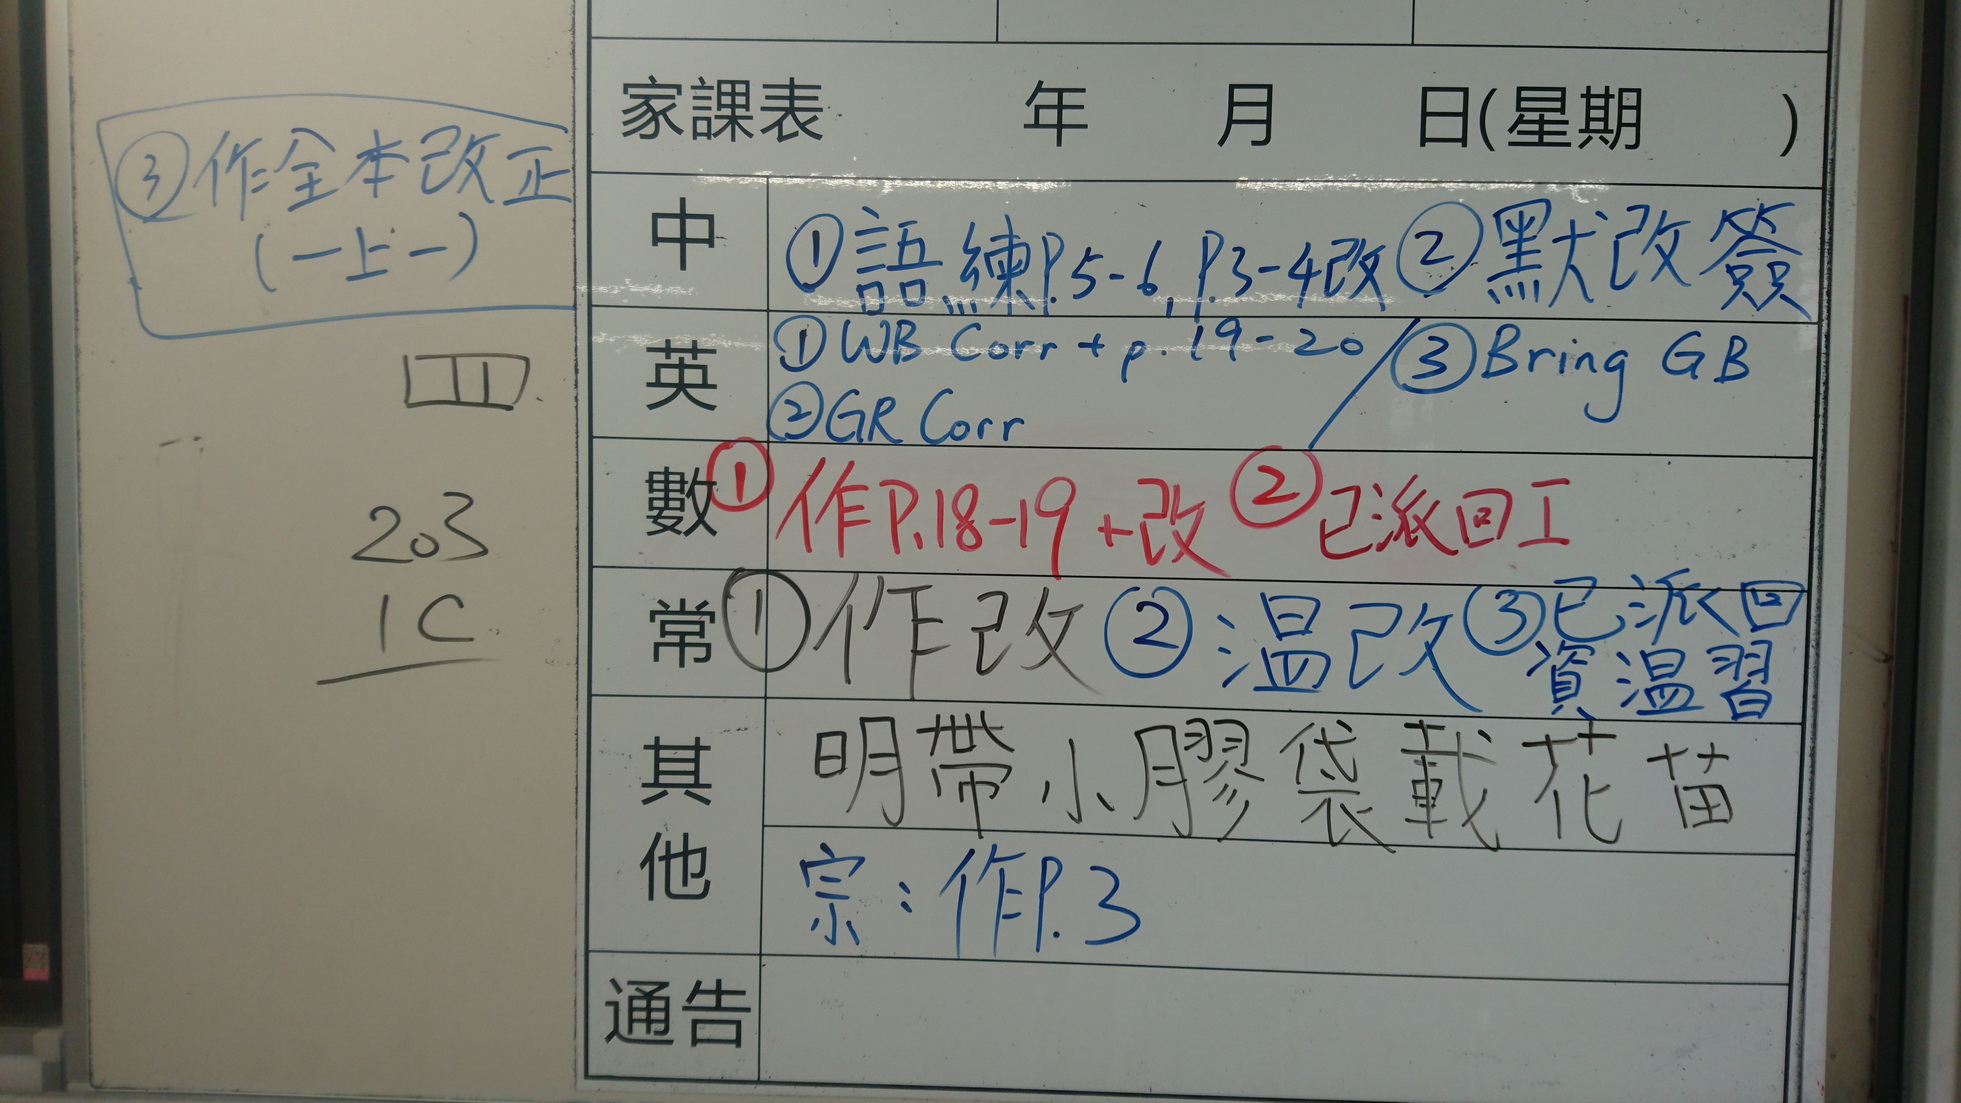 家課表 年 月 日(星期 )
③作全本改正
(一上一)
中 ①語練P.5-6, P.3-4改 ②默改簽
英 ①WB Corr + p.19-20 ③Bring GB
②GR Corr
數 ①作P.18-19+改 ②已派回工
常 ①作改 ②溫改 ③已派回
資溫習
其他 明帶小膠袋載花苗
宗：作P.3
通告
203
1C